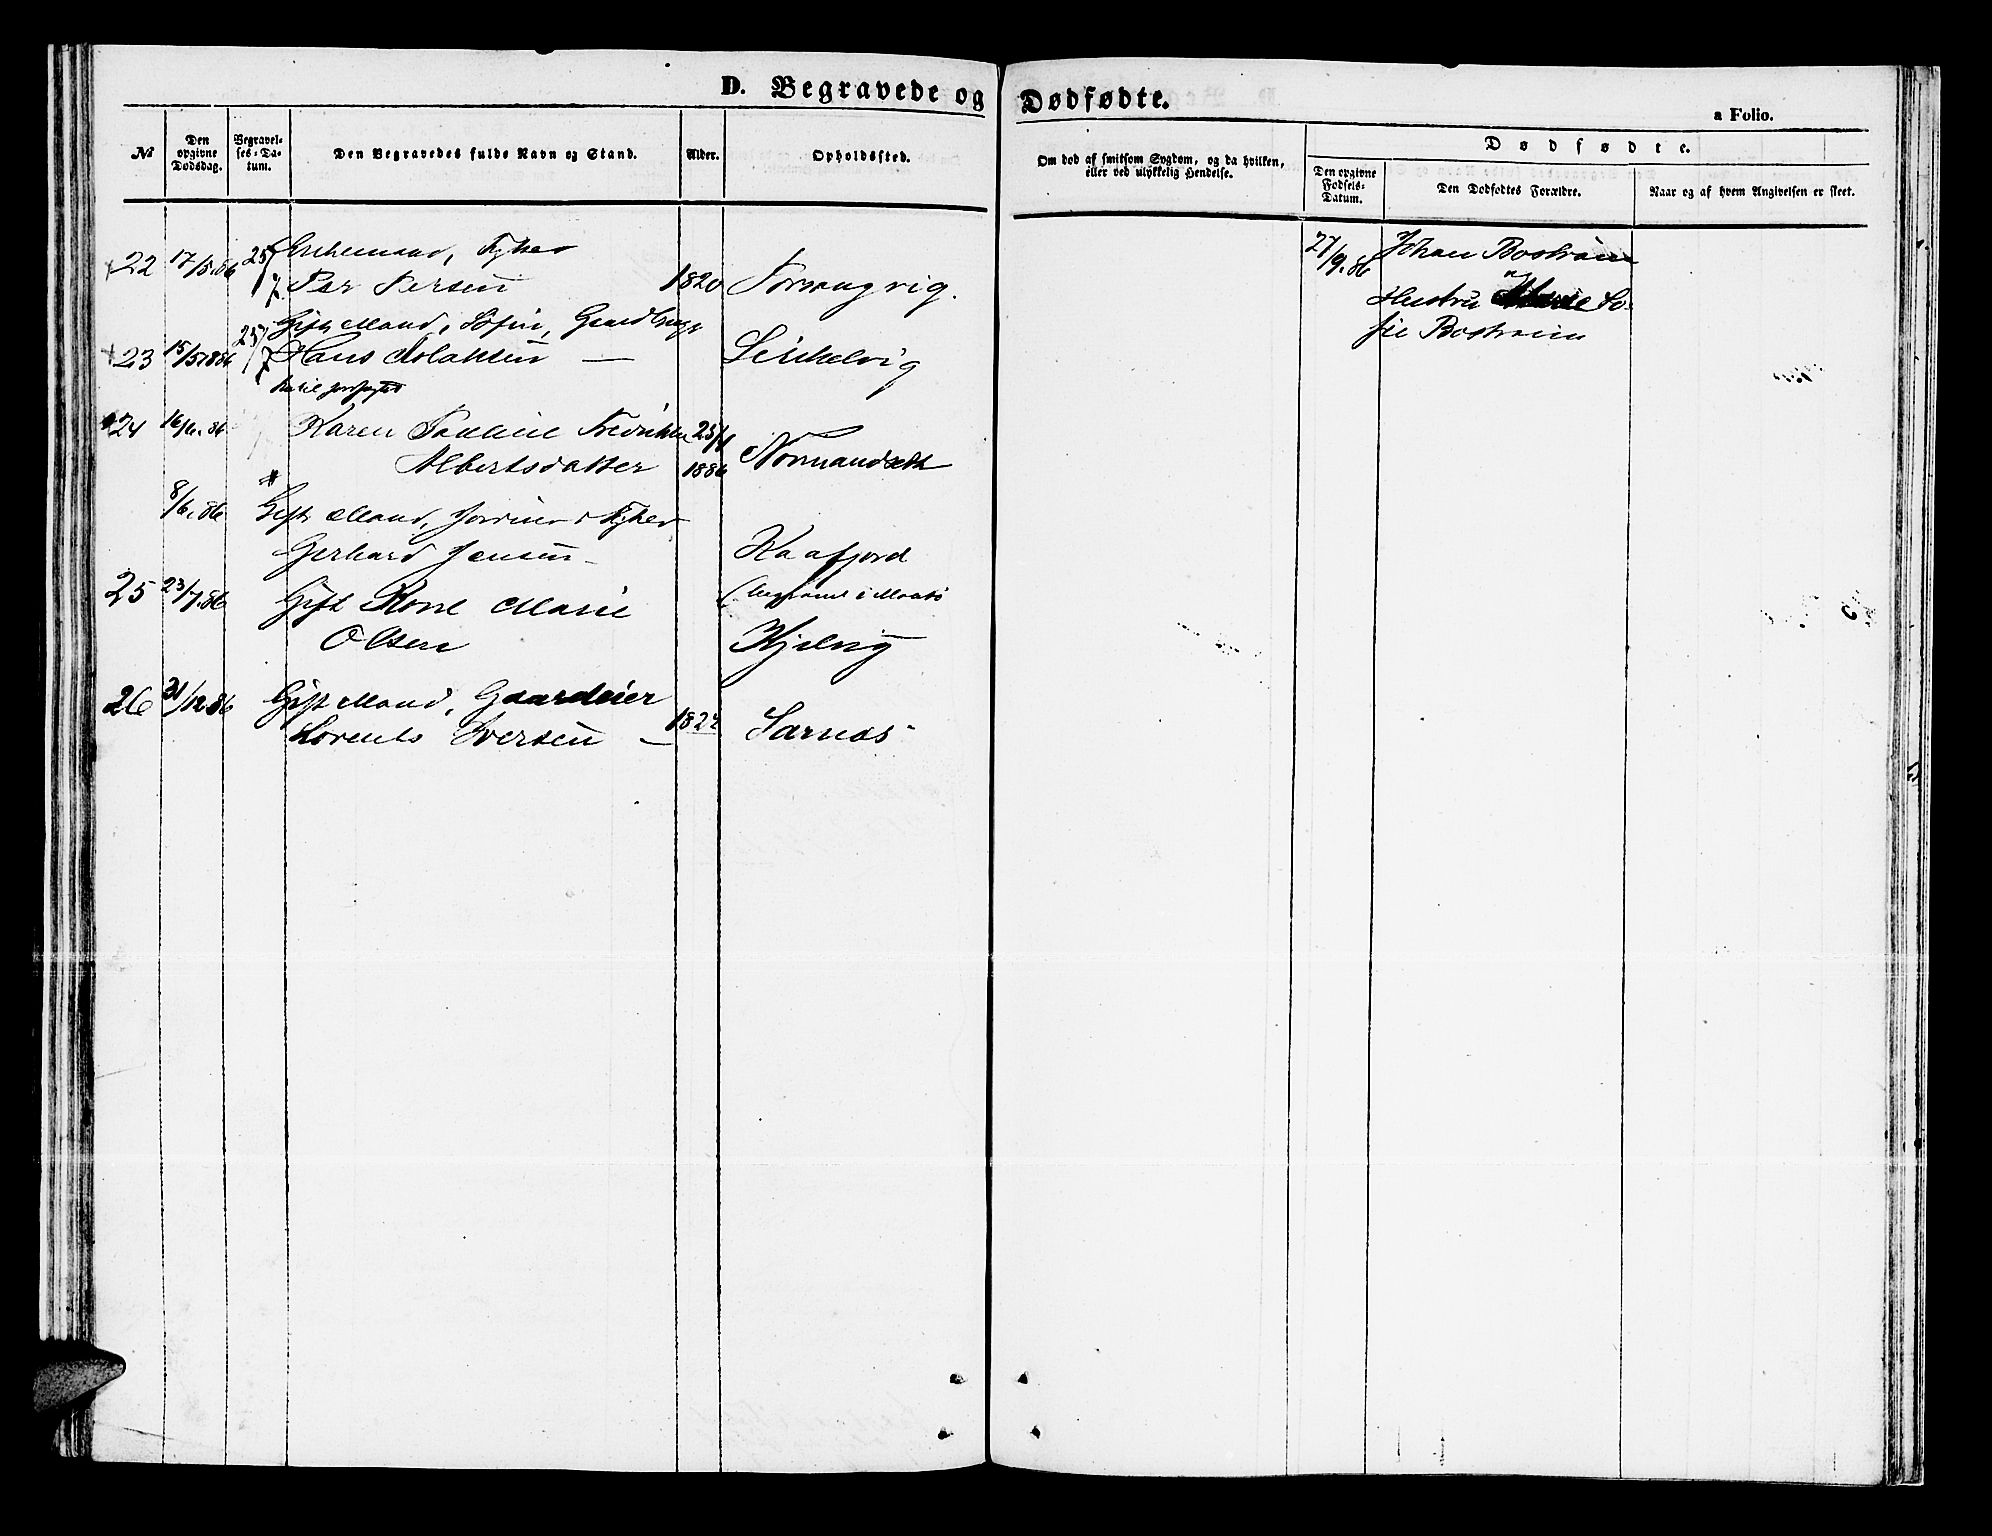 D. Begravede og Dødfødte.
a Folio.
No
Den opgivne Dødsdag.
Begravelses-Datum.
Den Begravedes fulde Navn og Stand.
Alder.
Opholdssted.
Om død af smitsom Sygdom, og da hvilken,
eller ved ulykkelig Hendelse.
Dødfødte.
Den opgivne Fødsels-Datum.
Den Dødfødtes Forældre.
Naar og af hvem Angivelsen er skeet.
22 17/5.86 25/7 Enkemand, Fisker
Per Persen 1820
23 15/5 1886 25/7 Gift Mand, Søfin, Gaardbruger
Hans Aslaksen —
24 16/6.86 Karen Pauline Fredrikke 25/4
Albertsdatter 1886 Normandseth
8/6.86 Gift Mand, Fisker
Gerhard Jensen - Kaafjord
25 23/7.86 Gift Kone Marie
Olsen Kjelvig
26 31/12 86 Gift Mand, Gaardeier
Lorents Iversen — Sarnes
27/9.86 Johan Bostrøm
og
Hustru So-
fie Bostrøm